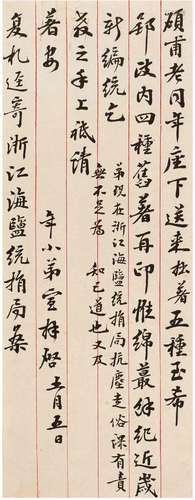 碩甫老同年座下送来拙著五種至希
郢政内四種舊著再印惟綿蕞餘纪近歲
新編統乞
教之手上祗請
著安
弟現在浙江海鹽統捐局抗塵走俗深有責
無不足為 知己道也又及
年小弟 拜啓 五月五日
复札逕寄浙江海鹽統捐局条